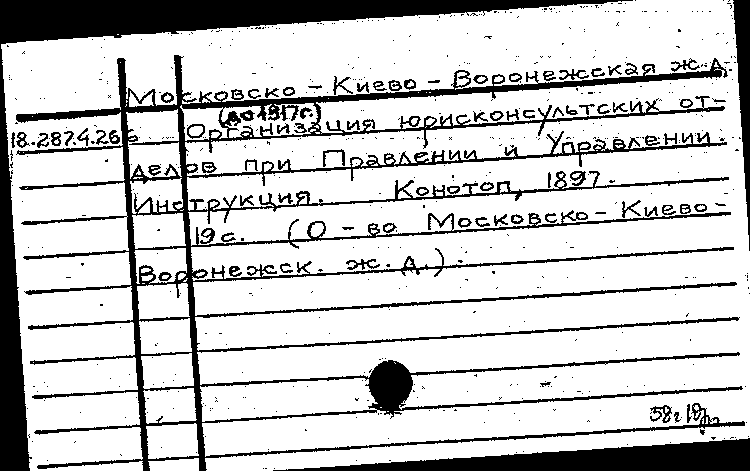 Московско - Киево - Воронежская ж.д.
(до 1917г.)
18.287.4.266 Организация юрисконсультских от-
делов при Правлении и Управлении.
Инструкция. Конотоп, 1897.
19с. (О - во Московско - Киево -
Воронежск. ж. д.).